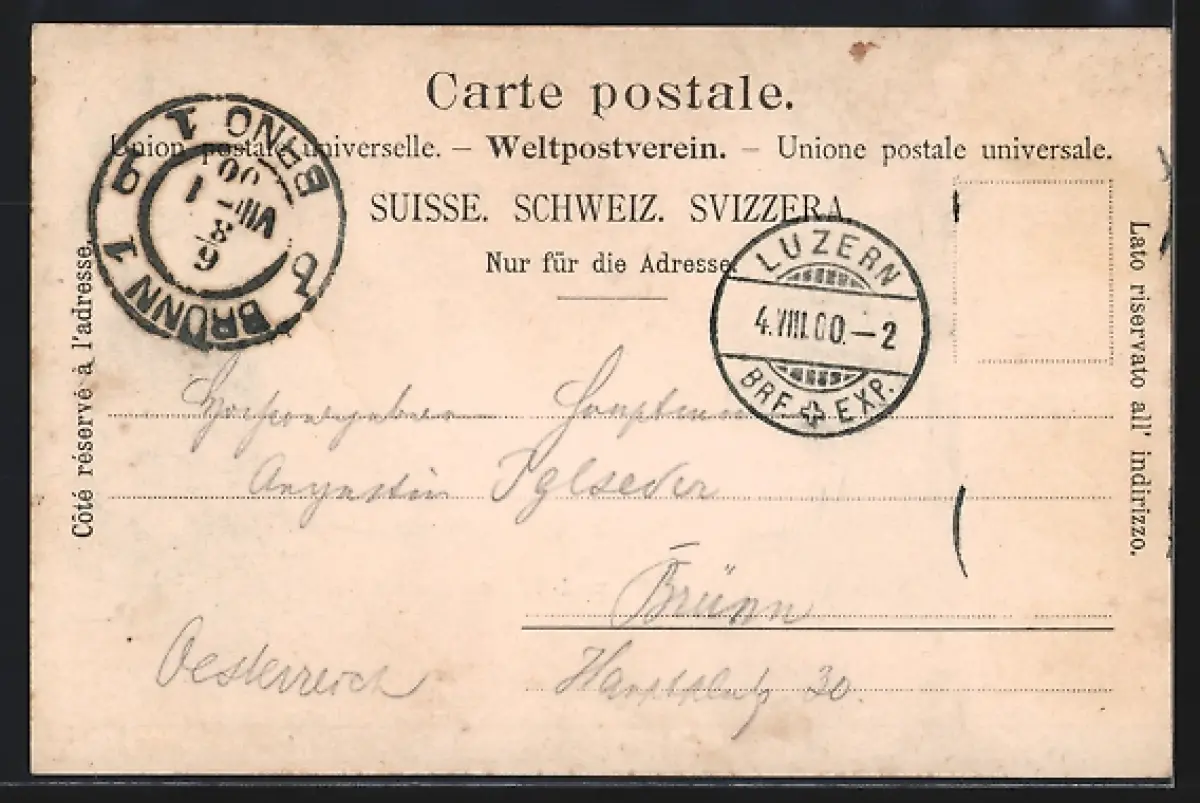 Carte postale.
Union postale universelle. – Weltpostverein. – Unione postale universale.
SUISSE. SCHWEIZ. SVIZZERA.
Nur für die Adresse.
Côté réservé à l'adresse.
Lato riservato all' indirizzo.
BRÜNN 1 BRNO 1
6/8
VIII–1
00
LUZERN
4.VIII.00.–2
BRF. EXP.
Augustin Iglseder
Brünn
Oesterreich
30.